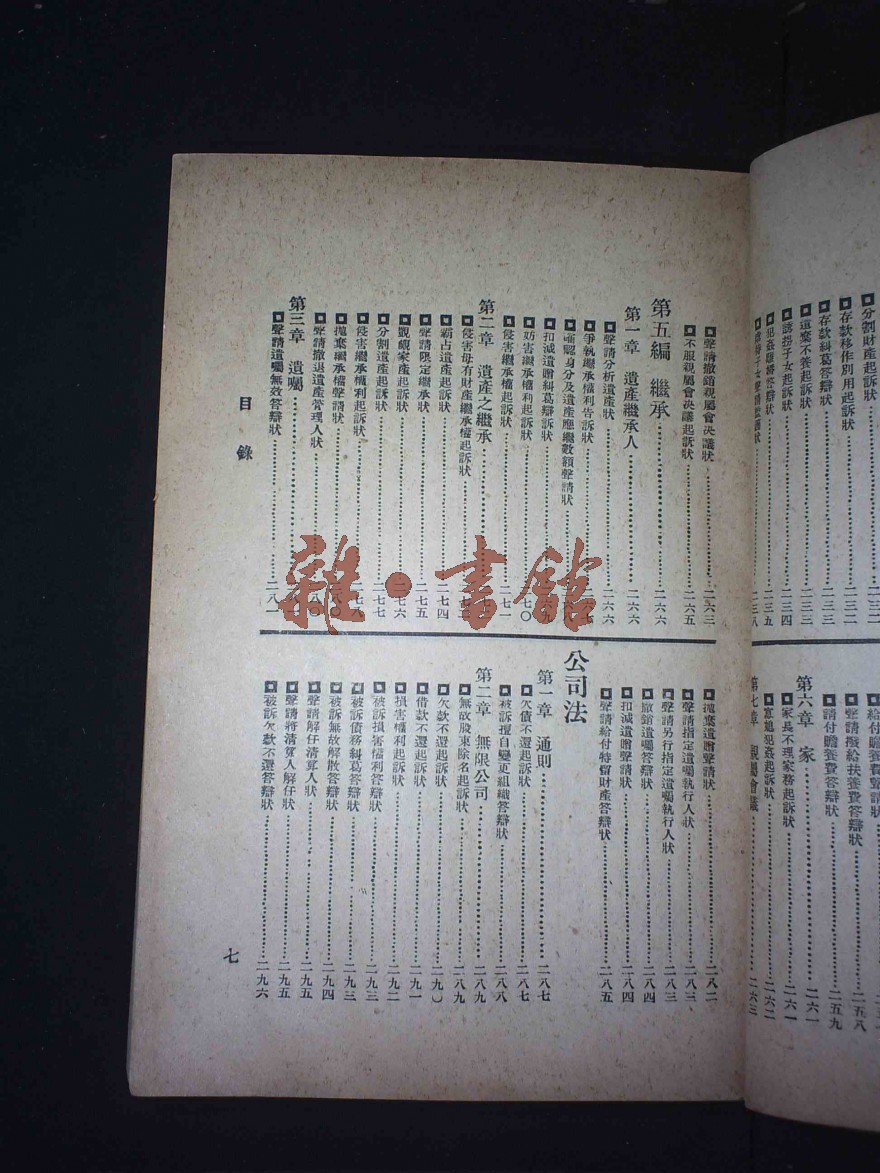 分割財產起訴狀……二三二
存款移作別用起訴狀……二三二
存款糾葛答辯狀……二三三
遺棄不養起訴狀……二三三
誘拐子女起訴狀……二三四
二三五
二三八
給付贍養費聲請狀
聲請撥給扶養費答辯狀……二五八
請付贍養費答辯狀……二五九
第六章 家……二六一
家長不理家務起訴狀……二六一
起訴狀……二六二
第七章 親屬會議……二六三
聲請撤銷親屬會決議狀……二六三
不服親屬會決議起訴狀……二六五
第五編 繼承……二六六
第一章 遺產繼承人……二六六
聲請分析遺產狀……二六六
爭執繼承權利告訴狀
否認身分及遺產應繼數額聲請狀
扣減遺贈糾葛辯訴狀
妨害繼承權利起訴狀……二七〇
侵害繼承權起訴狀……二七一
第二章 遺產之繼承
侵害毋有財產繼承權起訴狀
霸占遺產起訴狀……二七四
聲請限定繼承狀……二七五
覬覦家產起訴狀……二七六
分割遺產起訴狀……二七七
侵害繼承權利起訴狀……二七八
拋棄繼承權聲請狀
聲請撤退遺產管理人狀
第三章 遺囑
聲請遺囑無效答辯狀……二八一
拋棄遺贈聲請狀……二八二
聲請指定遺囑執行人狀……二八三
聲請另行指定遺囑執行人狀……二八三
撤銷遺囑答辯狀……二八四
扣減遺贈聲請狀……二八四
聲請給付特留財產答辯狀……二八五
公司法
第一章 通則……二八七
欠債不還起訴狀……二八七
被訴擅自變更組織答辯狀……二八八
第二章 無限公司……二八九
無故股東除名起訴狀……二八九
欠款不還起訴狀……二九〇
借款不還起訴狀……二九一
損害權利起訴狀……二九二
被訴損害權利答辯狀……二九三
被訴債務糾葛答辯狀……二九三
被訴無故解散答辯狀……二九四
聲請解任清算人狀……二九五
聲請將清算人解任狀……二九五
被訴欠款不還答辯狀……二九六
目錄
七
雜·書館